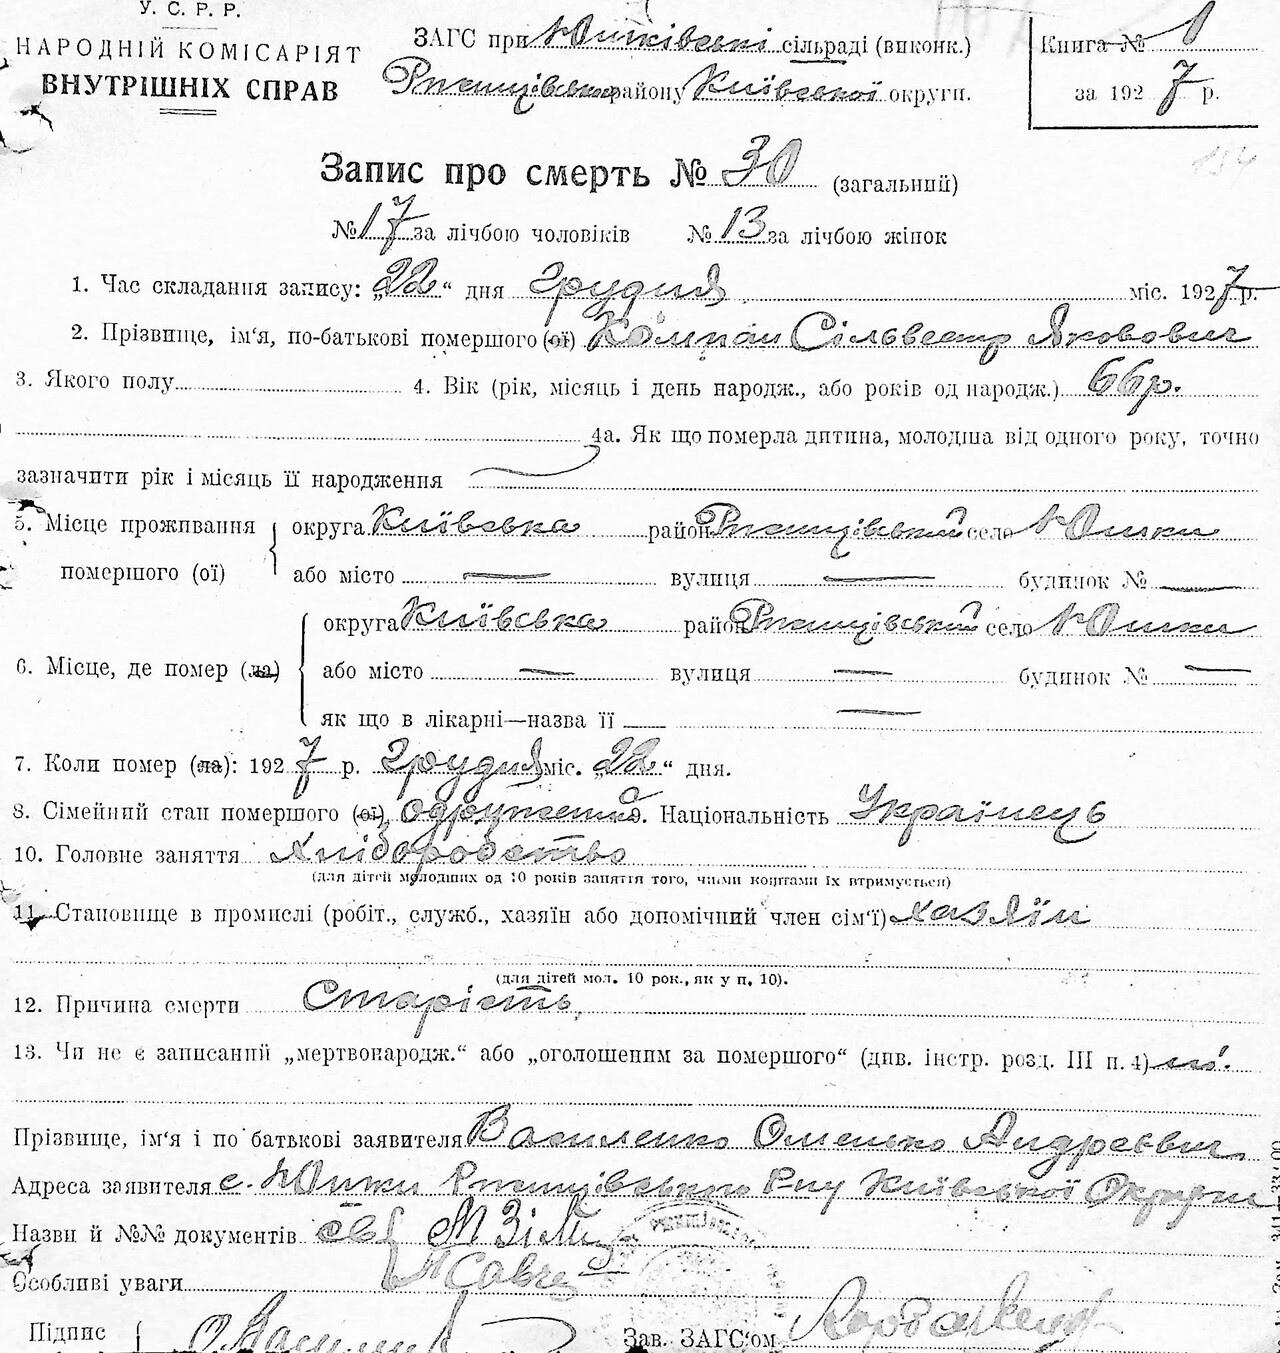 У. С. Р. Р.
НАРОДНІЙ КОМІСАРІЯТ
ВНУТРІШНІХ СПРАВ
ЗАГС при Юшківські сільраді (виконк.)
Ржищівськ району Київської округи.
Книга № 1
за 1927 р.
154
Запис про смерть № 30 (загальний)
№ 17 за лічбою чоловіків № 13 за лічбою жінок
1. Час складання запису: „22“ дня грудня міс. 1927 р.
2. Прізвище, ім‘я, по-батькові помершого (ої) Компан Сільвестр Якович
3. Якого полу 4. Вік (рік, місяць і день народж., або років од народж.) 66 р.
4а. Як що померла дитина, молодша від одного року, точно
зазначити рік і місяць її народження
5. Місце проживання помершого (ої) округа Київська район Ржищівський село Юшки
або місто — вулиця — будинок № —
6. Місце, де помер (ла) округа Київська район Ржищівський село Юшки
або місто — вулиця — будинок № —
як що в лікарні—назва її —
7. Коли помер (ла): 1927 р. грудня міс. „22“ дня.
8. Сімейний стан помершого (ої) одружений 9. Національність Українець
10. Головне заняття Хліборобство
(для дітей молодших од 10 років заняття того, чиїми коштами їх втримується)
11. Становище в промислі (робіт., служб., хазяїн або допомічний член сім‘ї) хазяїн
(для дітей мол. 10 рок., як у п. 10).
12. Причина смерти Старість
13. Чи не є записаний „мертвонародж.“ або „оголошеним за помершого“ (див. інстр. розд. III п. 4) ні.
Прізвище, ім‘я і по батькові заявителя Василенко Омелько Андреєвич
Адреса заявителя с. Юшки Ржищівського Р-ну Київської Округи
Назви й №№ документів
Особливі уваги
Підпис
Зав. ЗАГС‘ом